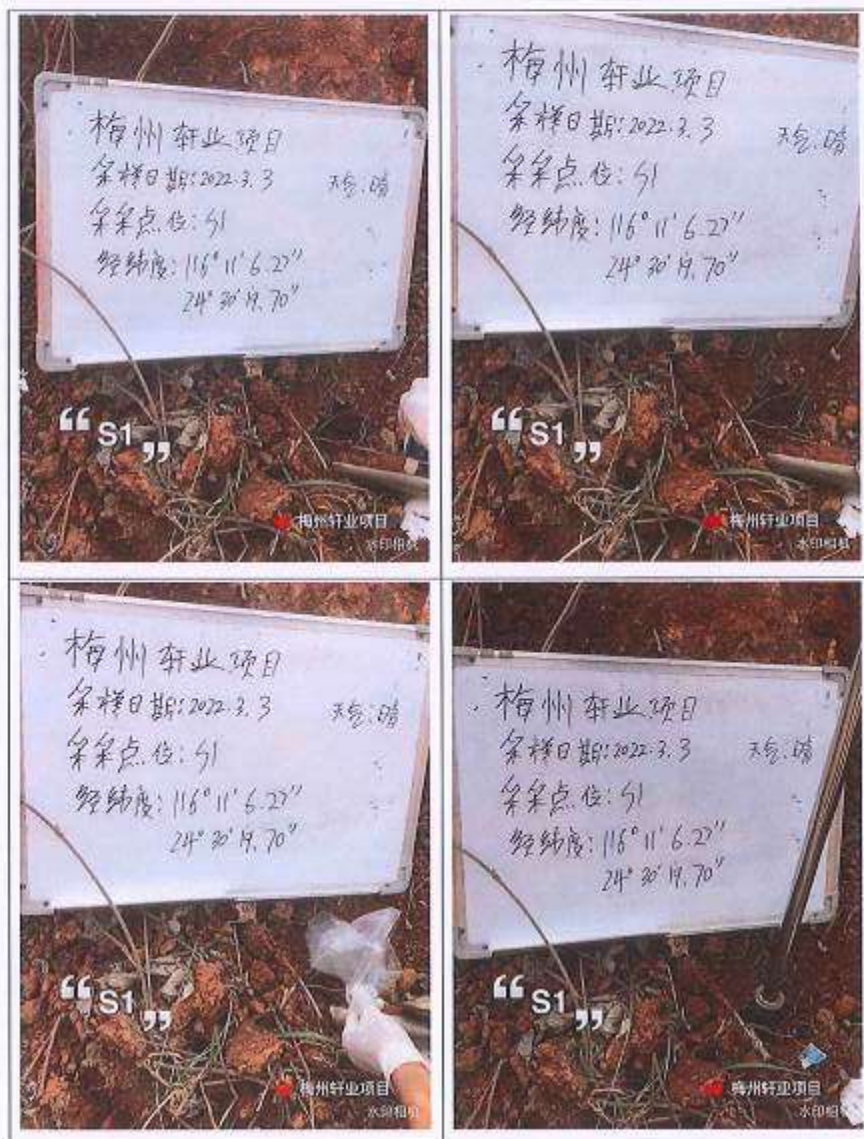 梅州轩业项目
采样日期:2022.3.3 天气:晴
采采点位:S1
经纬度:116°11'6.27"
24°30'19.70"
“S1”
梅州轩业项目
水印相机
梅州轩业项目
采样日期:2022.3.3 天气:晴
采采点位:S1
经纬度:116°11'6.27"
24°30'19.70"
“S1”
梅州轩业项目
水印相机
梅州轩业项目
采样日期:2022.3.3 天气:晴
采采点位:S1
经纬度:116°11'6.27"
24°30'19.70"
“S1”
梅州轩业项目
水印相机
梅州轩业项目
采样日期:2022.3.3 天气:晴
采采点位:S1
经纬度:116°11'6.27"
24°30'19.70"
“S1”
梅州轩业项目
水印相机